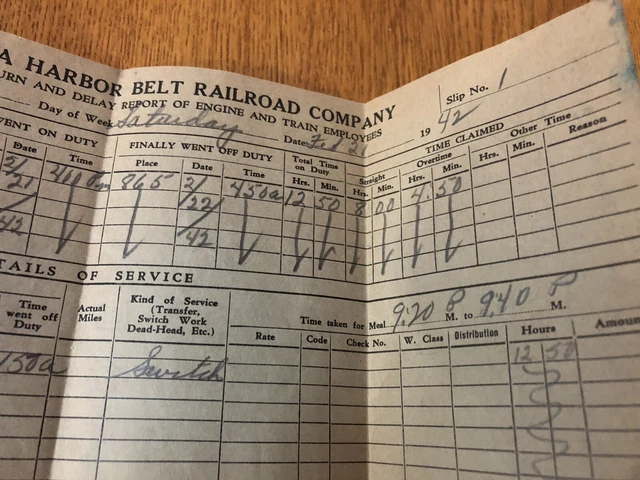 A HARBOR BELT RAILROAD COMPANY
URN AND DELAY REPORT OF ENGINE AND TRAIN EMPLOYEES
Slip No. 1
Day of Week Saturday Date Feb 21 1942
WENT ON DUTY FINALLY WENT OFF DUTY Total Time on Duty TIME CLAIMED
Straight Overtime Other Time Reason
Date Time Place Date Time Hrs. Min. Hrs. Min. Hrs. Min. Hrs. Min.
2/21 400 Pm 865 2/22/ 450a 12 50 8 00 4 50
42 42
TAILS OF SERVICE
Time taken for Meal 9:20 P M. to 9:40 P M.
Time went off Duty Actual Miles Kind of Service (Transfer, Switch Work Dead-Head, Etc.) Rate Code Check No. W. Class Distribution Hours Amoun
450a Switch 12 50